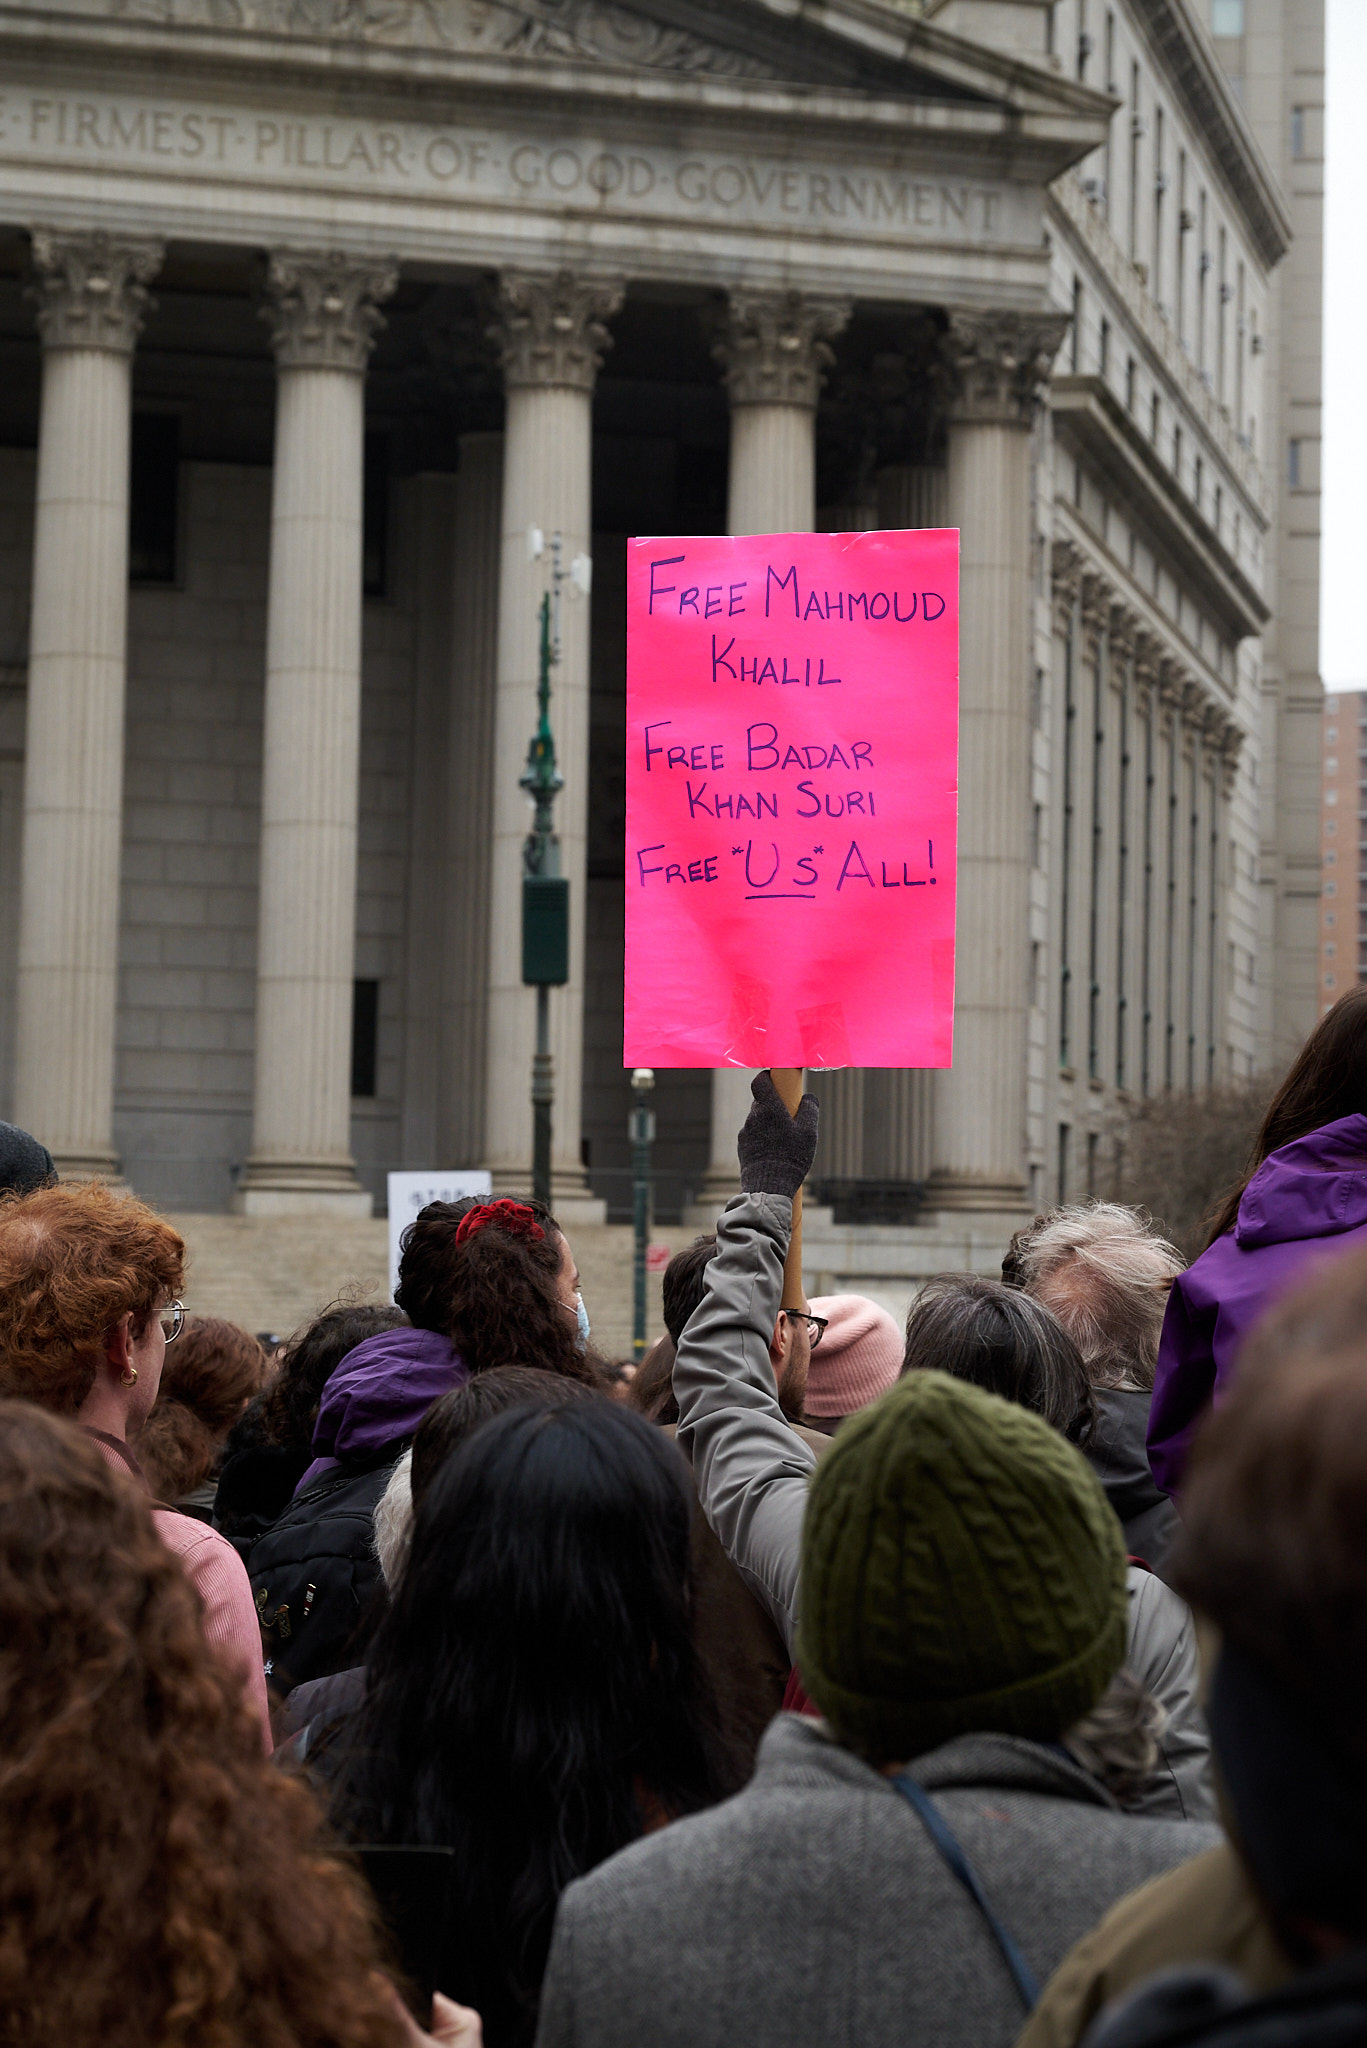 FIRMEST·PILLAR·OF·GOOD·GOVERNMENT
FREE MAHMOUD
KHALIL
FREE BADAR
KHAN SURI
FREE *US* ALL!